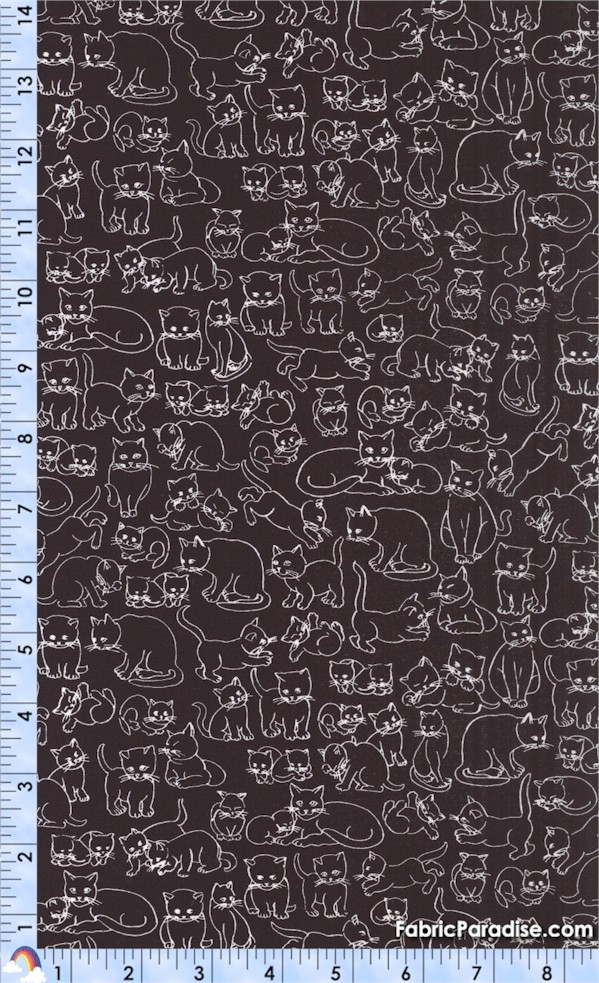 14
13
12
11
10
9
8
7
6
5
4
3
2
1
FabricParadise.com
1 2 3 4 5 6 7 8